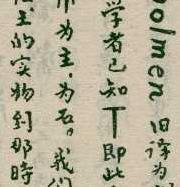 olmen 旧译为
学者已知丅即此
为主，为石。我们
主的实物到那時